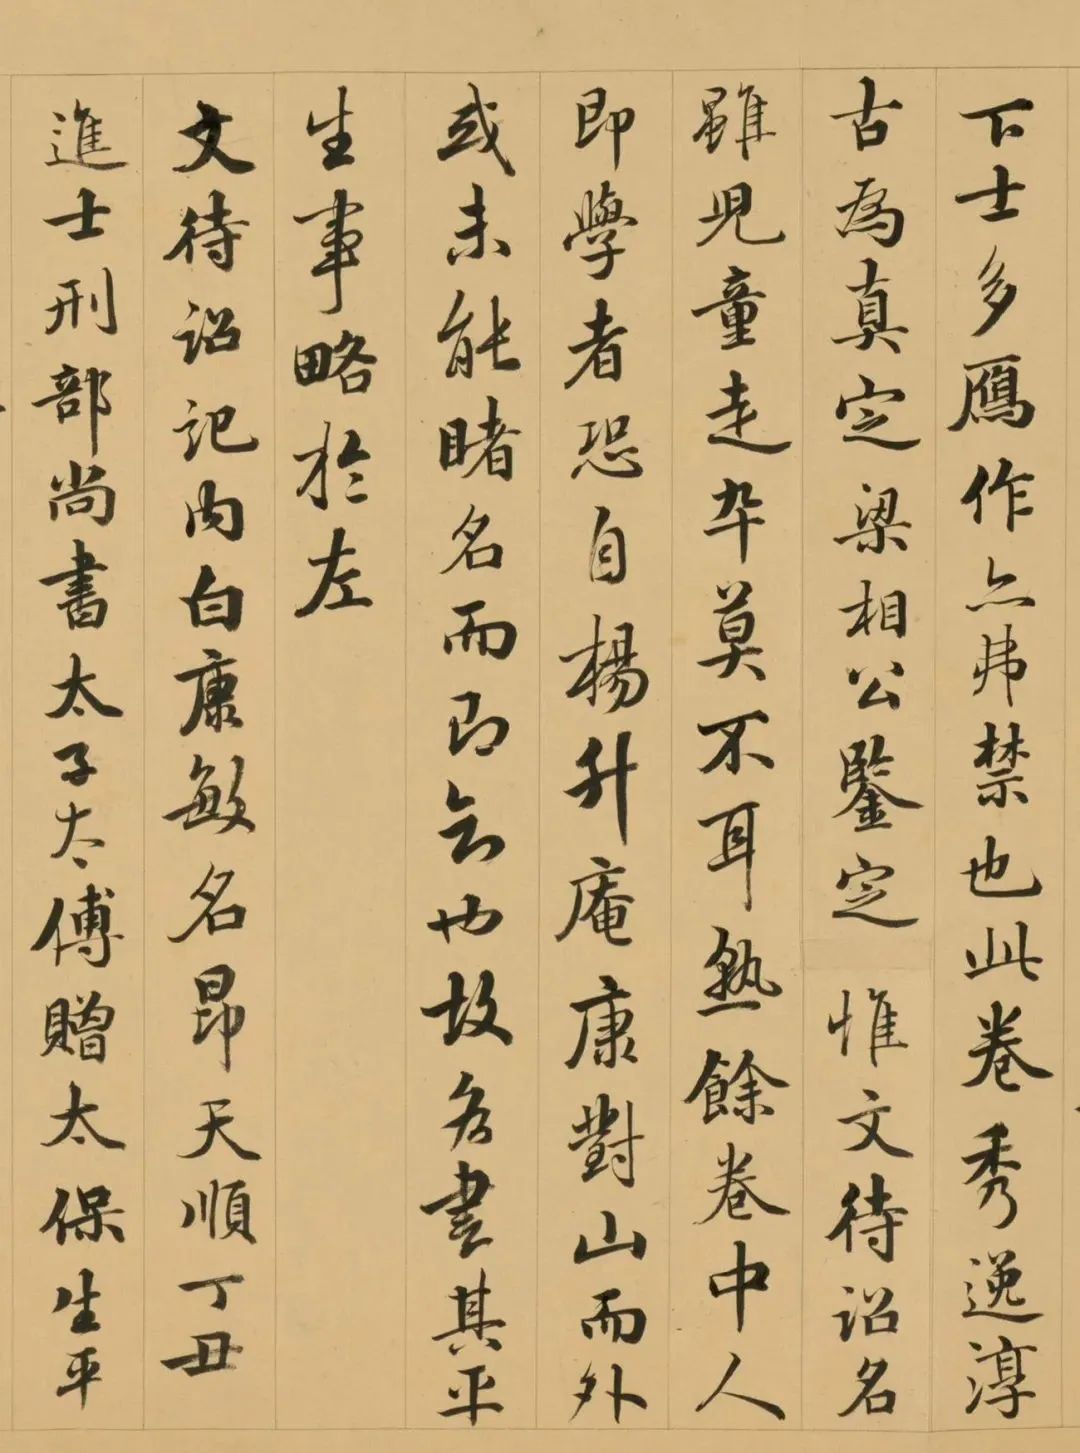 下士多贋作亦弗禁也此卷秀逸淳
古為真定梁相公鑒定惟文待詔名
雖児童走卒莫不耳熟餘卷中人
即學者恐自楊升庵康對山而外
或未能睹名而即知也故各書其平
生事略於左
文待詔記内白康敏名昂天順丁丑
進士刑部尚書太子太傅贈太保生平